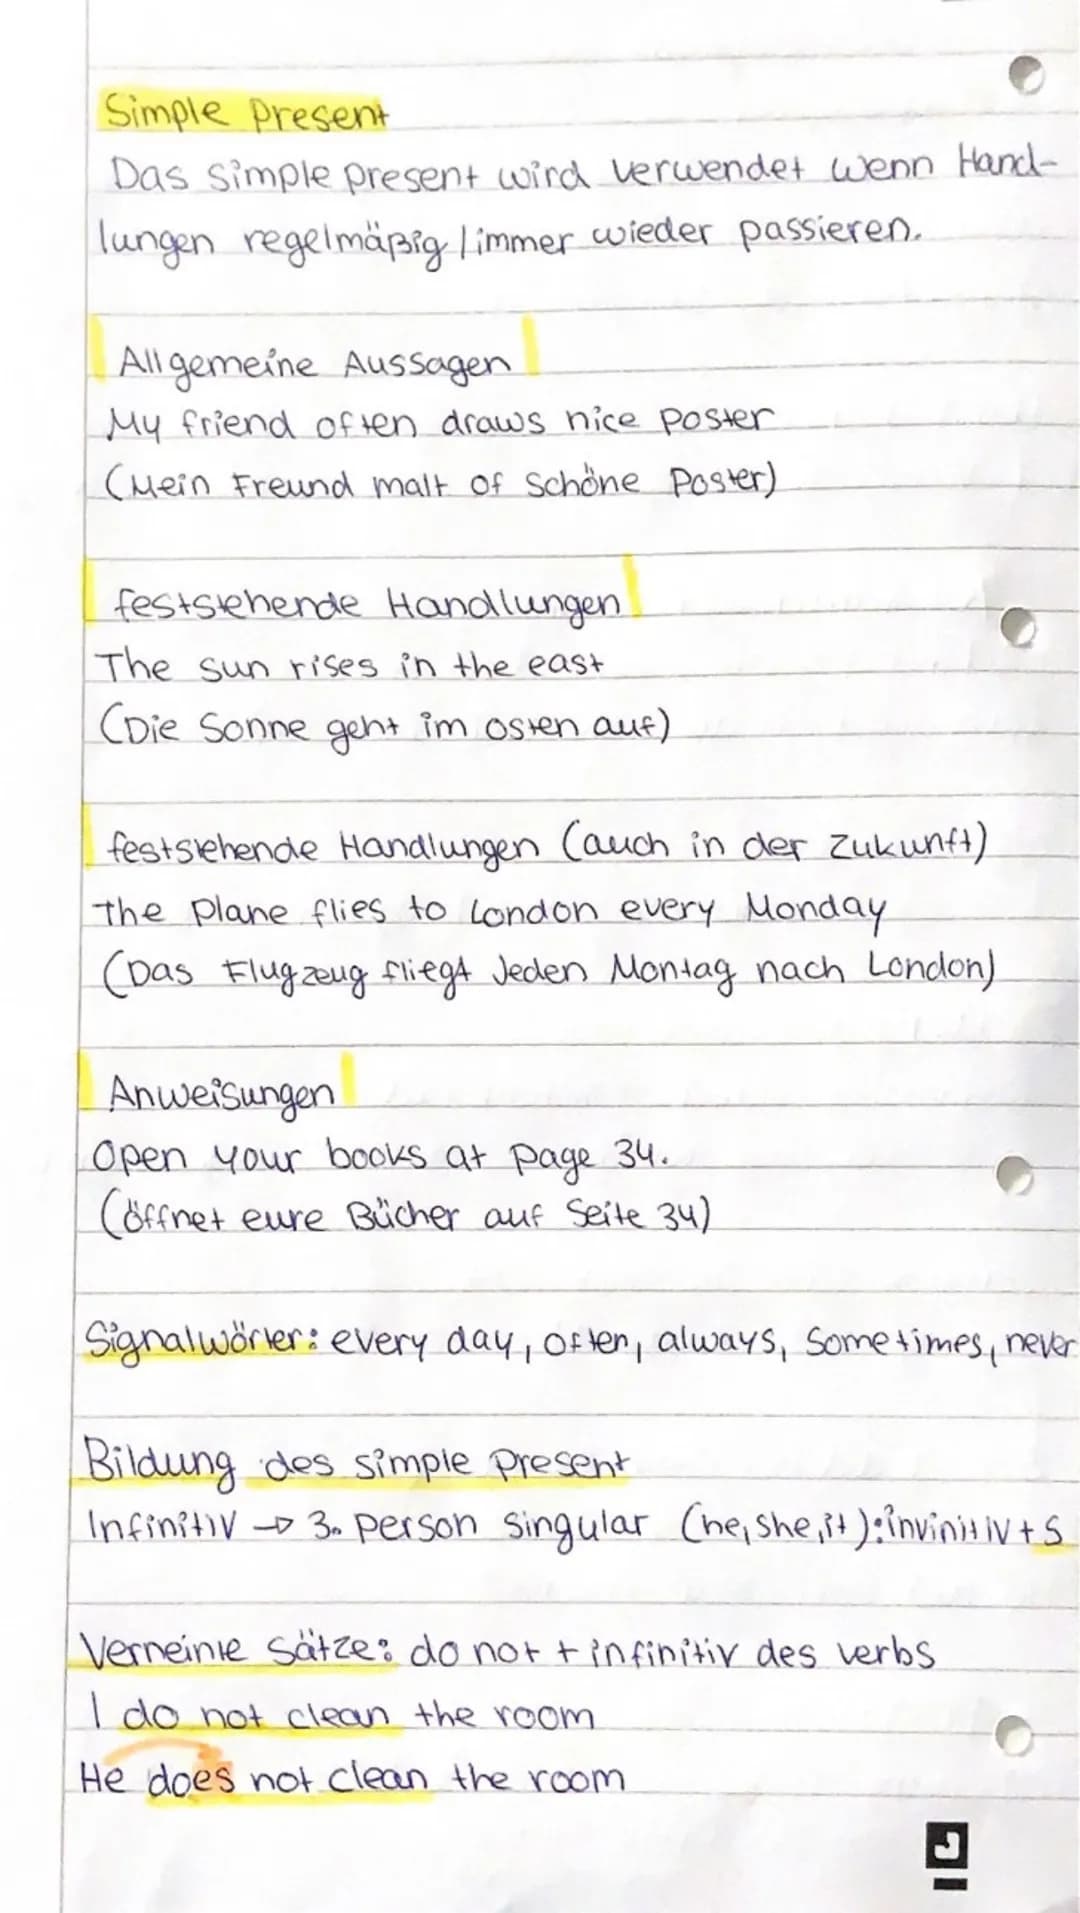 Simple Present
Das simple present wird verwendet wenn Hand-
lungen regelmäßig / immer wieder passieren.
Allgemeine Aussagen
My friend often draws nice poster
(Mein Freund malt of schöne Poster)
feststehende Handlungen
The sun rises in the east
(Die Sonne geht im osten auf)
feststehende Handlungen (auch in der Zukunft)
The plane flies to London every Monday
(Das Flugzeug fliegt Jeden Montag nach London)
Anweisungen
Open your books at page 34.
(öffnet eure Bücher auf Seite 34)
Signalwörter: every day, often, always, Sometimes, never
Bildung des simple Present
Infinitiv → 3. person singular (he, she, it): invinitiv + S
Verneinte Sätze: do not + infinitiv des verbs
I do not clean the room
He does not clean the room